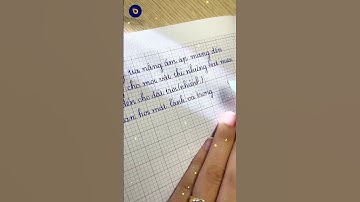 tia nắng ấm áp mang đến
cho mọi vật thì những hạt mưa
đến cho đất trời (nhành)
hơi mát lành và trong